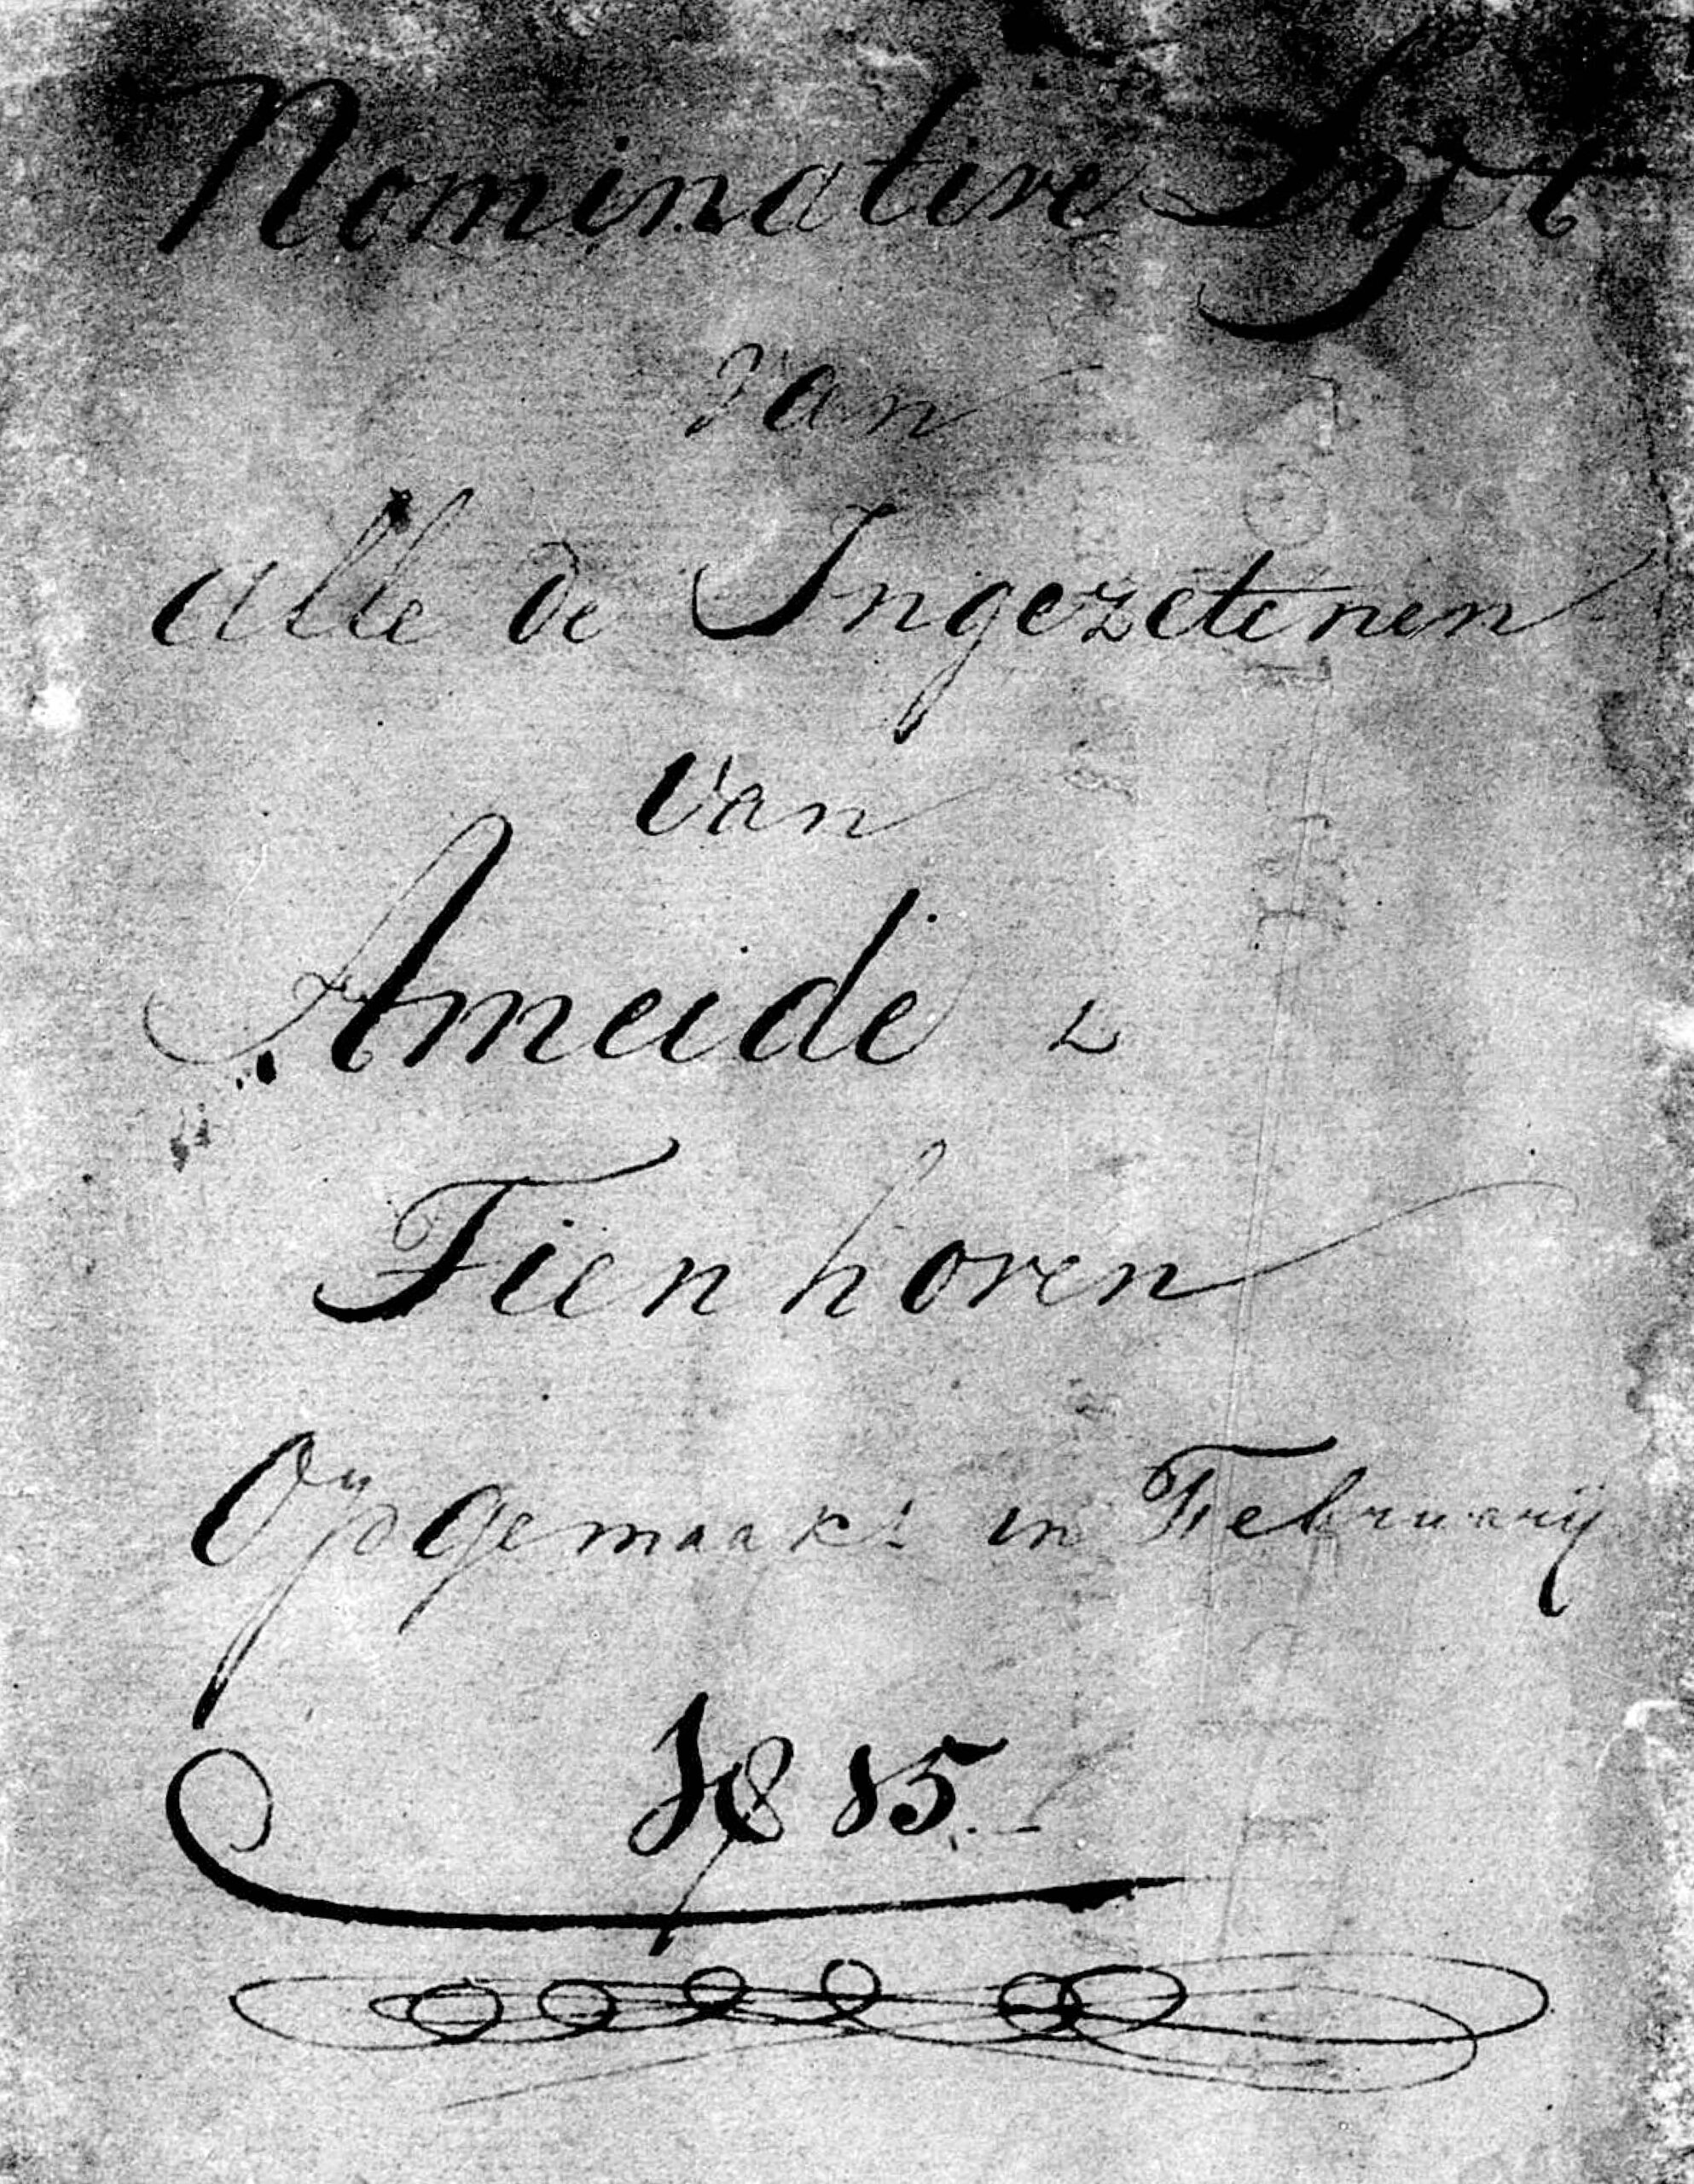 Nominative Lijst
van
alle de Ingezetenen
van
Ameide &
Tienhoven
Opgemaakt in Februarij
1815